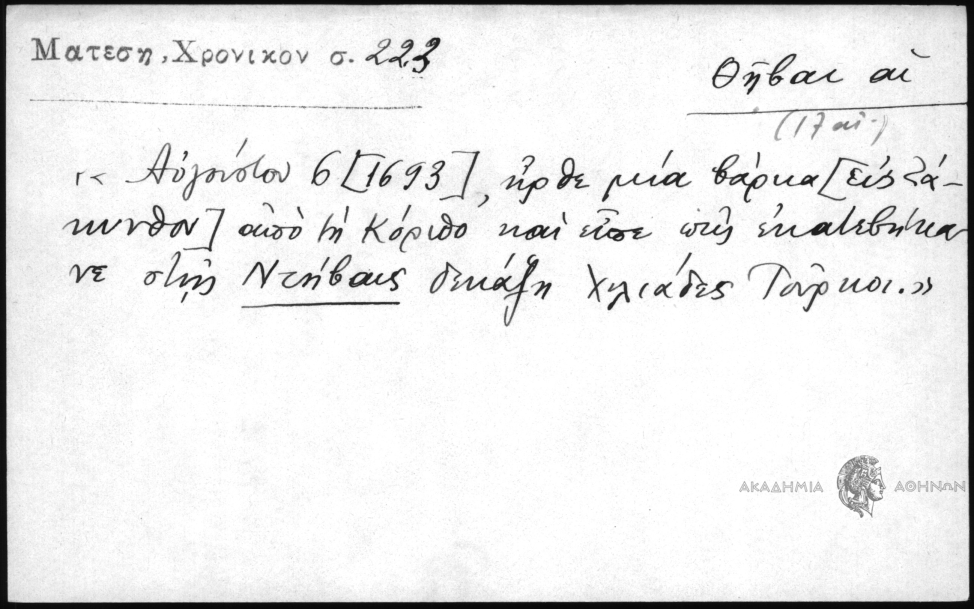 Ματεση, Χρονικον σ. 223
Θῆβαι αἱ
(17 αἰ.)
« Αὐγούστου 6 [1693], ἦρθε μία βάρκα [εἰς Ζά-
κυνθον] ἀπὸ τὴ Κόριθο καὶ εἶπε πῶς ἐκατεβήκα-
νε στῆς Ντήβαις δεκάξη χιλιάδες Τοῦρκοι.»
ΑΚΑΔΗΜΙΑ ΑΘΗΝΩΝ